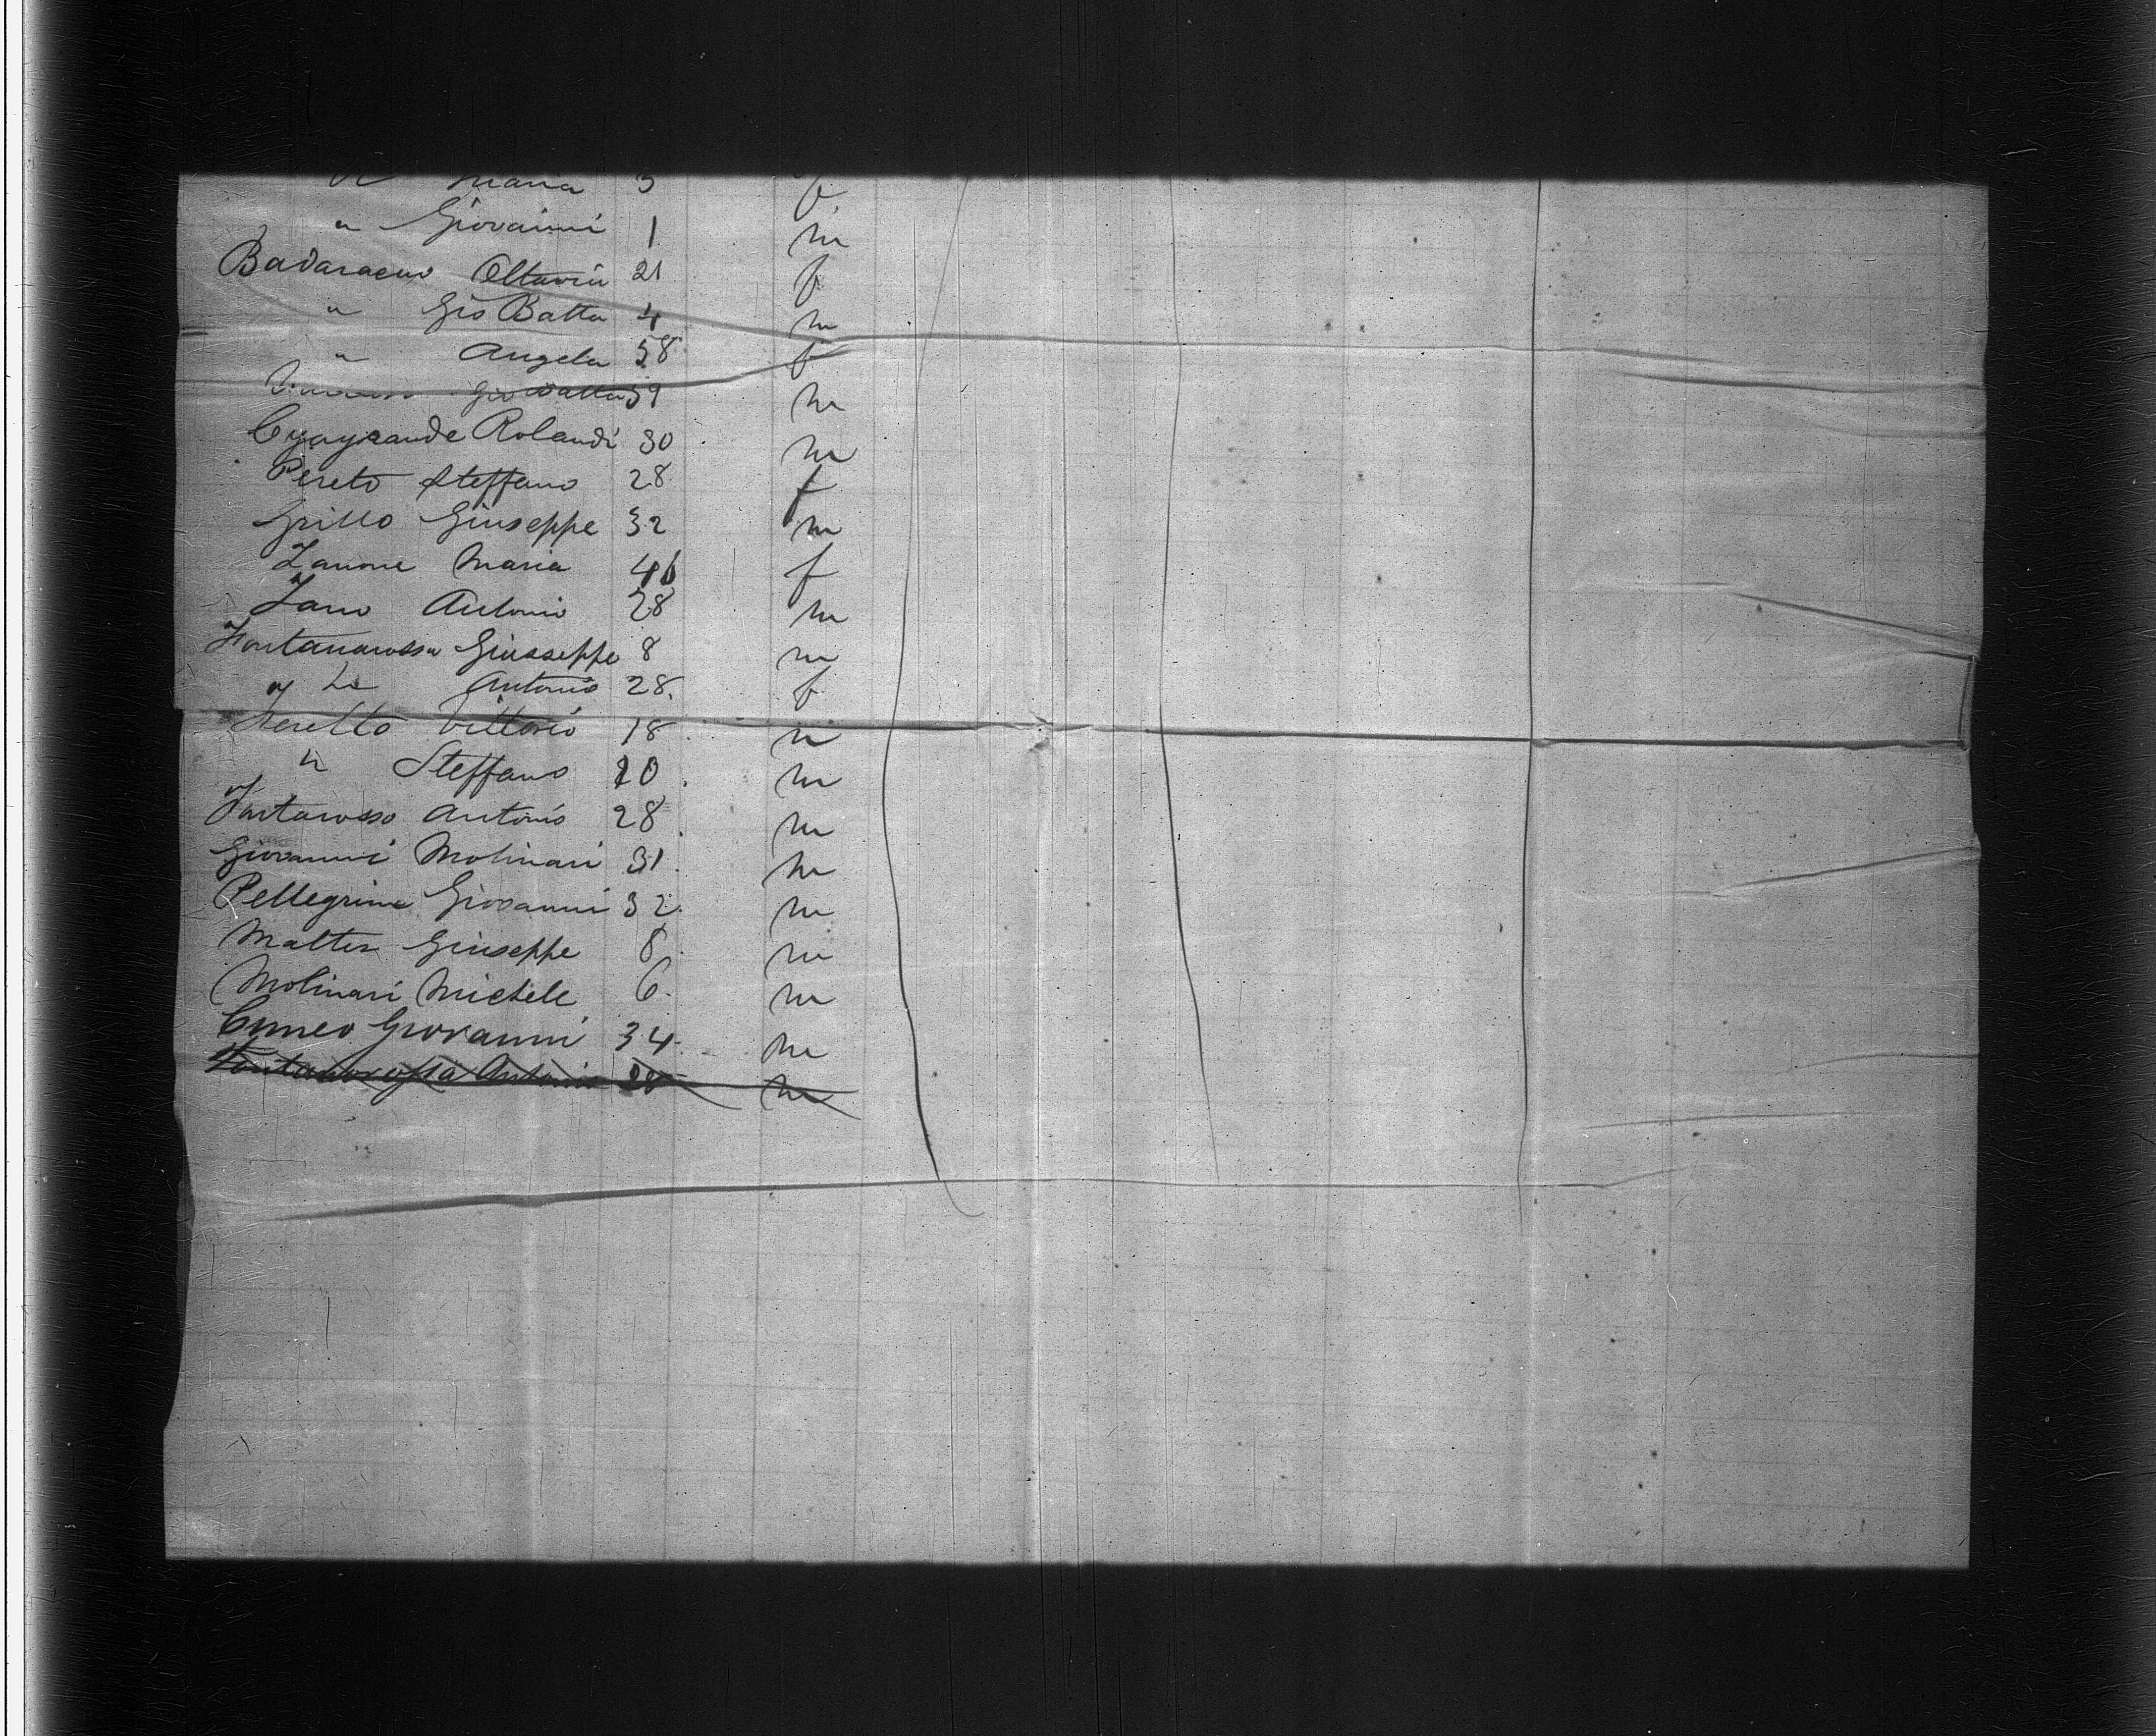 " Maria 3 f
" Giovanni 1 m
Badaracco Ottavia 21 f
" Gio Batta 4 m
" Angela 58 f
Gio Batta 39 m
Rolandi 30 m
Pereto Steffano 28 f
Grillo Giuseppe 32 m
Zanone Maria 46 f
Zano Antonio 28 m
Fontanarossa Giusseppe 8 m
Antonio 28. f
Vittorio 18 m
" Steffano 20. m
Fontarosso Antonio 28. m
Giovanni Molinari 31. m
Pellegrine Giovanni 32. m
Giuseppe 8. m
Molinari Michele 6. m
Cuneo Giovanni 34. m
Fontanarossa Antonio 28 m